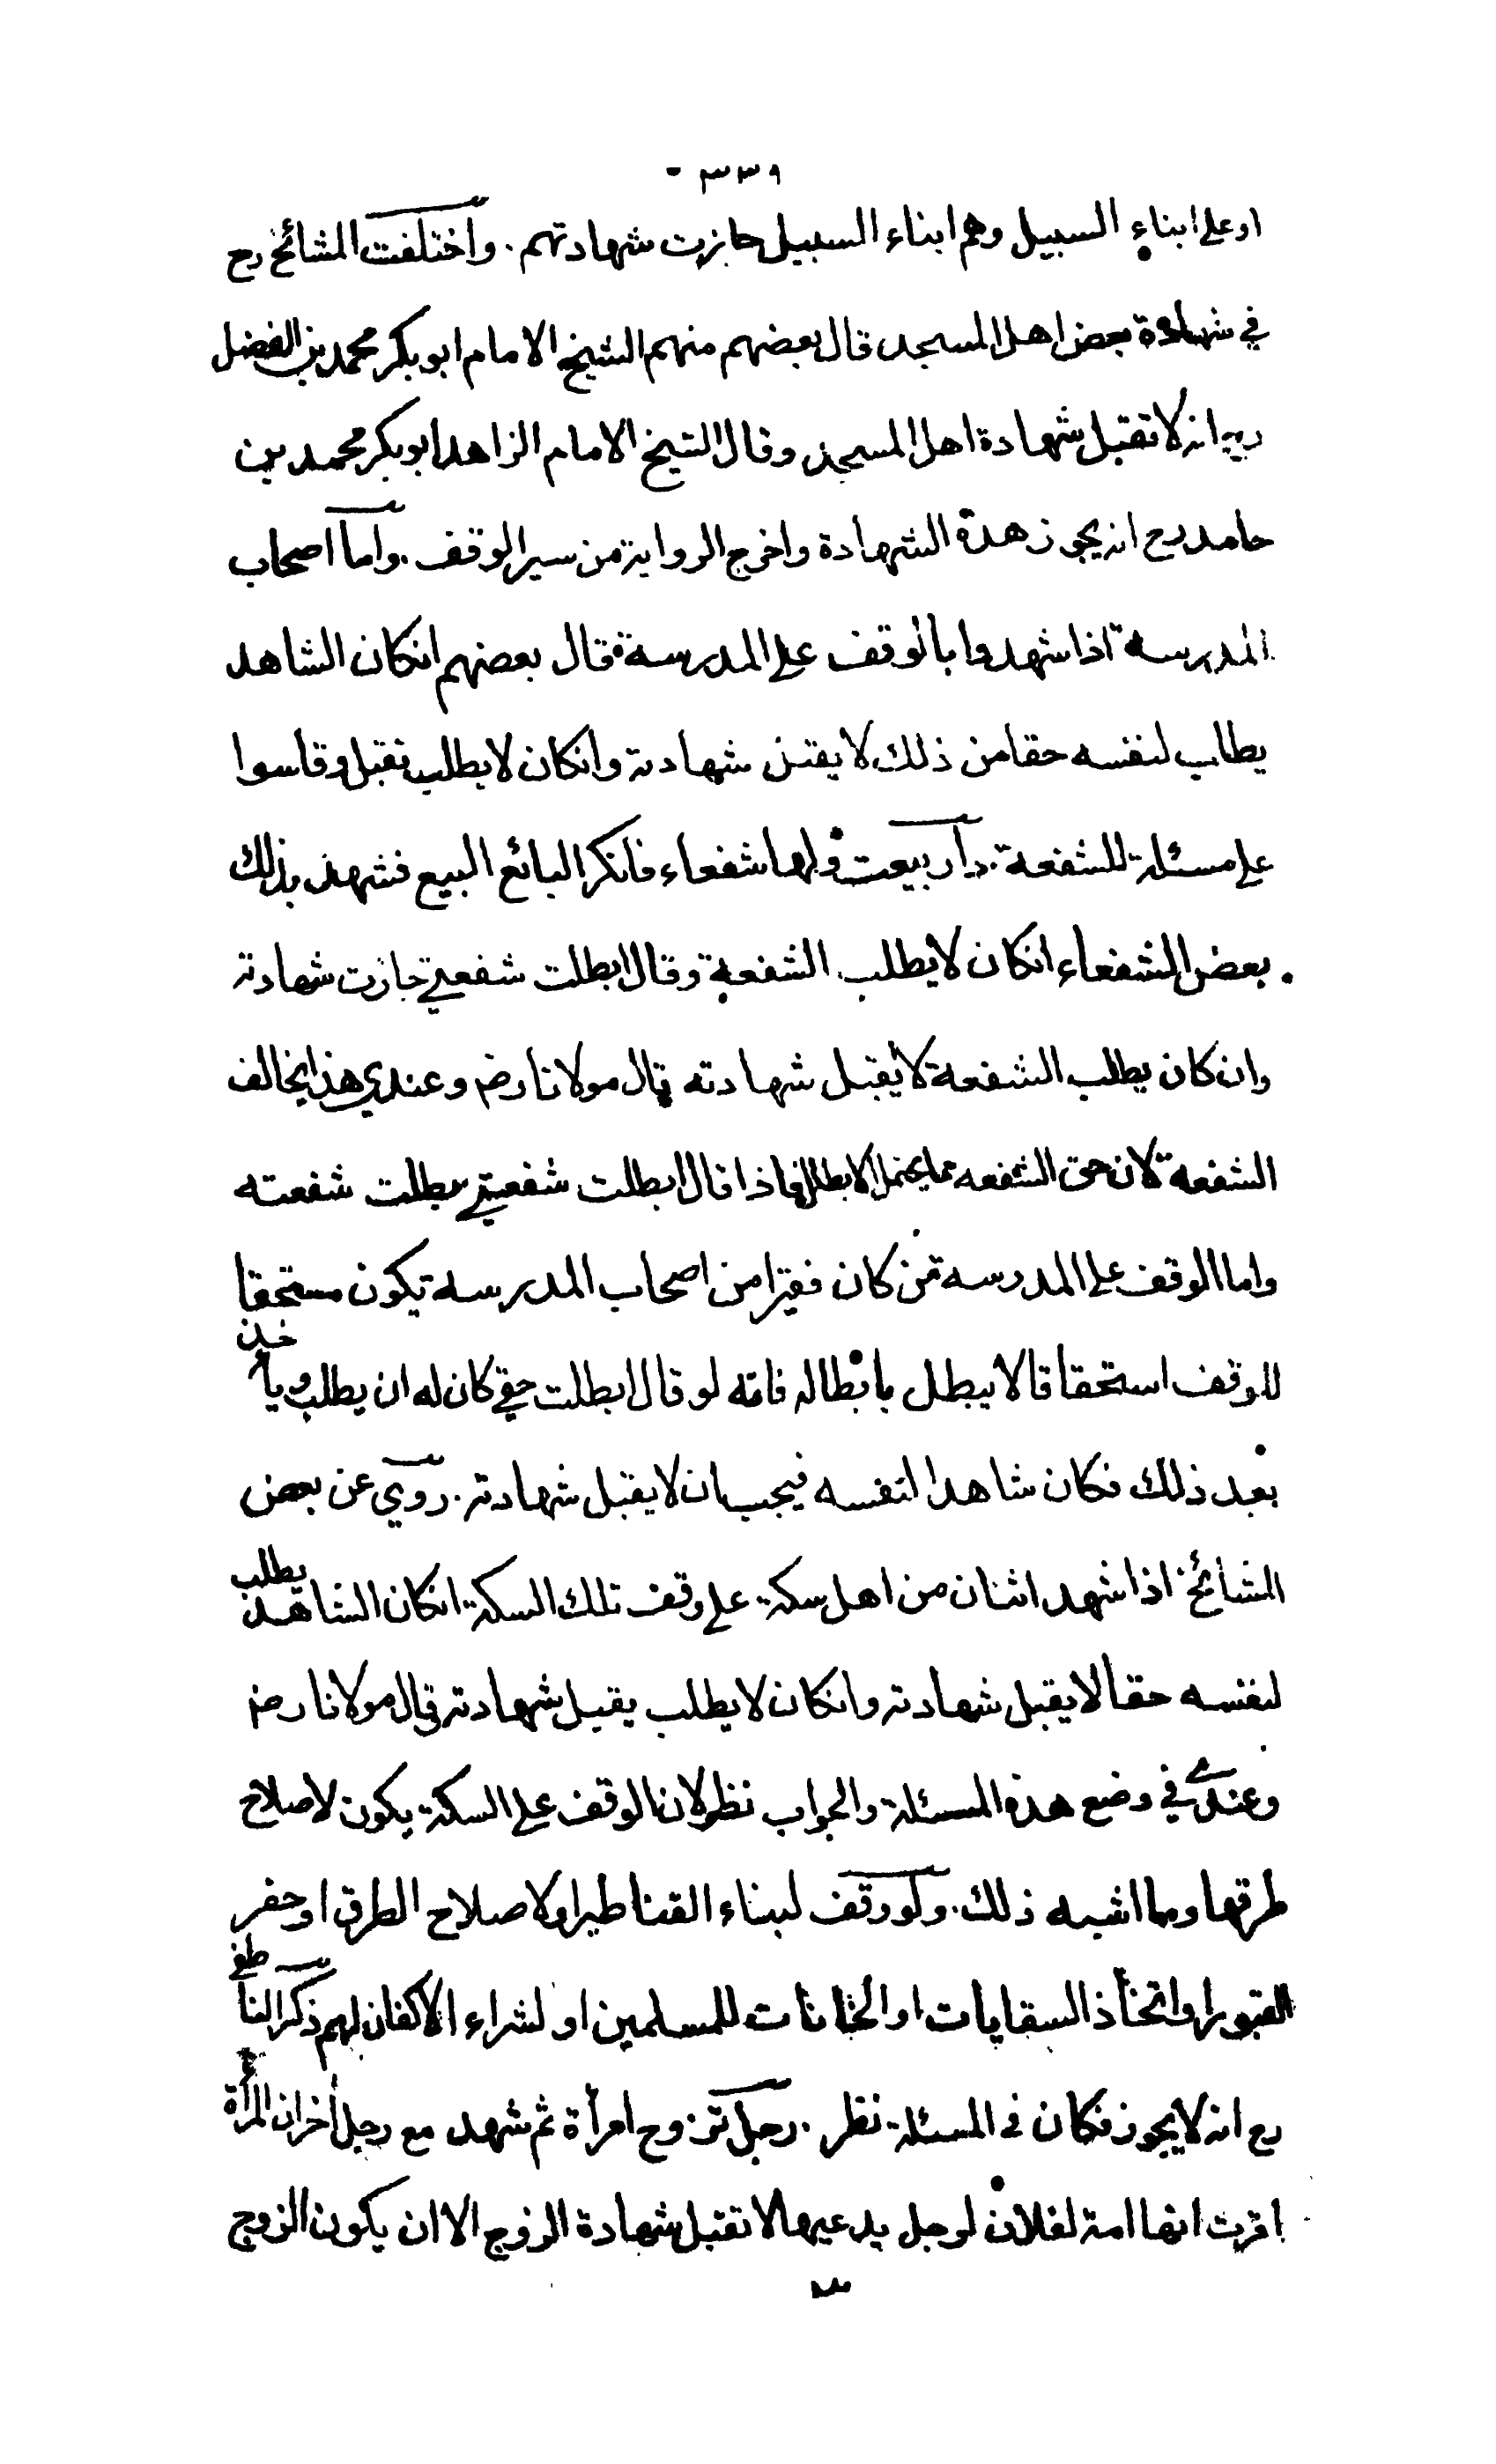 ٣٣٩
او على ابناء السبيل وهم ابناء السبيل جازت شهادتهم . واختلفت المشائخ رح
في شهادة بعض اهل المسجد قال بعضهم منهم الشيخ الامام ابو بكر محمد بن الفضل
رح انه لا تقبل شهادة اهل المسجد وقال الشيخ الامام الزاهد ابو بكر محمد بن
حامد رح انه يجوز هذه الشهادة واخرج الرواية من سير الوقف . واما اصحاب
المدرسة اذا شهدوا بالوقف على المدرسة قال بعضهم انكان الشاهد
يطلب لنفسه حقا من ذلك لا يقبل شهادته وانكان لا يطلب تقبل وقاسوا
على مسئلة الشفعة . دار بيعت ولها شفعاء فانكر البائع البيع فشهد بذلك
بعض الشفعاء انكان لا يطلب الشفعة وقال ابطلت شفعتي جازت شهادته
وان كان يطلب الشفعة لا يقبل شهادته قال مولانا رض وعندي هذا يخالف
الشفعة لان حق الشفعه مما يحتمل الابطال فاذا قال ابطلت شفعتي بطلت شفعته
واما الوقف على المدرسه فمن كان فقيرا من اصحاب المدرسه يكون مستحقا
للوقف استحقاقا لا يبطل بابطاله فانه لو قال ابطلت حقي كان له ان يطلب ويأخذ
بعد ذلك فكان شاهدا لنفسه فيجب ان لا يقبل شهادته . روي عن بعض
المشائخ اذا شهد اثنان من اهل سكة على وقف تلك السكة انكان الشاهد يطلب
لنفسه حقا لا يقبل شهادته وانكان لا يطلب يقبل شهادته قال مولانا رض
وعندي في وضع هذه المسئلة والجواب نظر لان الوقف على السكة يكون لاصلاح
طرقها وما اشبه ذلك . ولو وقف لبناء القناطير او لاصلاح الطرق او حفر
القبور او اتخاذ السقايات او الخانات للمسلمين او لشراء الاكفان لهم ذكر الناطفي
رح انه لا يجوز فكان في المسئلة نظر . رجل تزوج امرأة ثم شهد مع رجل أخر ان المرأة
اقرت انها امة لفلان لرجل يدعيها لا تقبل شهادة الزوج الا ان يكون الزوج